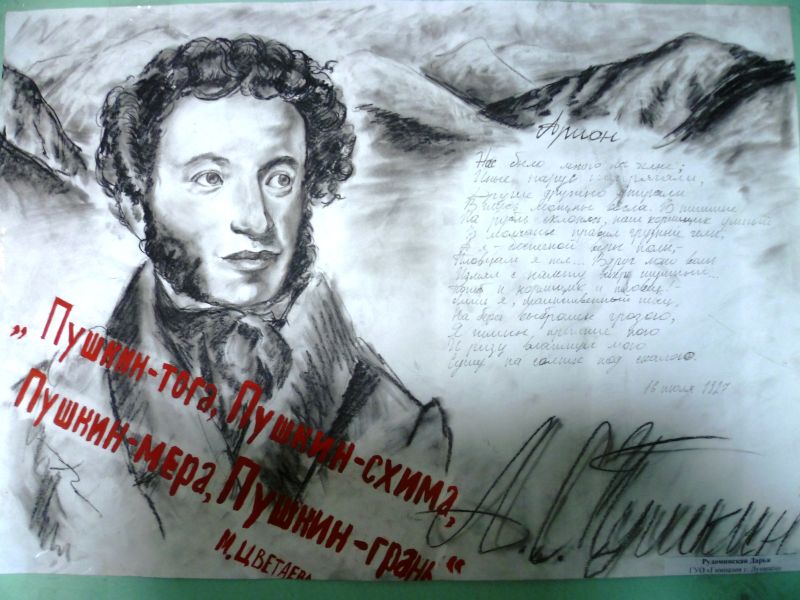 „Пушкин-тога, Пушкин-схима,
Пушкин-мера, Пушкин-грань“
М. Цветаева
Арион
Нас было много на челне;
Иные парус напрягали,
Другие дружно упирали
В глубь мощны весла. В тишине
На руль склонясь, наш кормщик умный
В молчанье правил грузный челн;
А я - беспечной веры полн, -
Пловцам я пел... Вдруг лоно волн
Измял с налету вихорь шумный...
Погиб и кормщик и пловец! -
Лишь я, таинственный певец,
На берег выброшен грозою,
Я гимны прежние пою
И ризу влажную мою
Сушу на солнце под скалою.
16 июля 1827
А. С. Пушкин
Рудоминская Дарья
ГУО «Гимназия г.